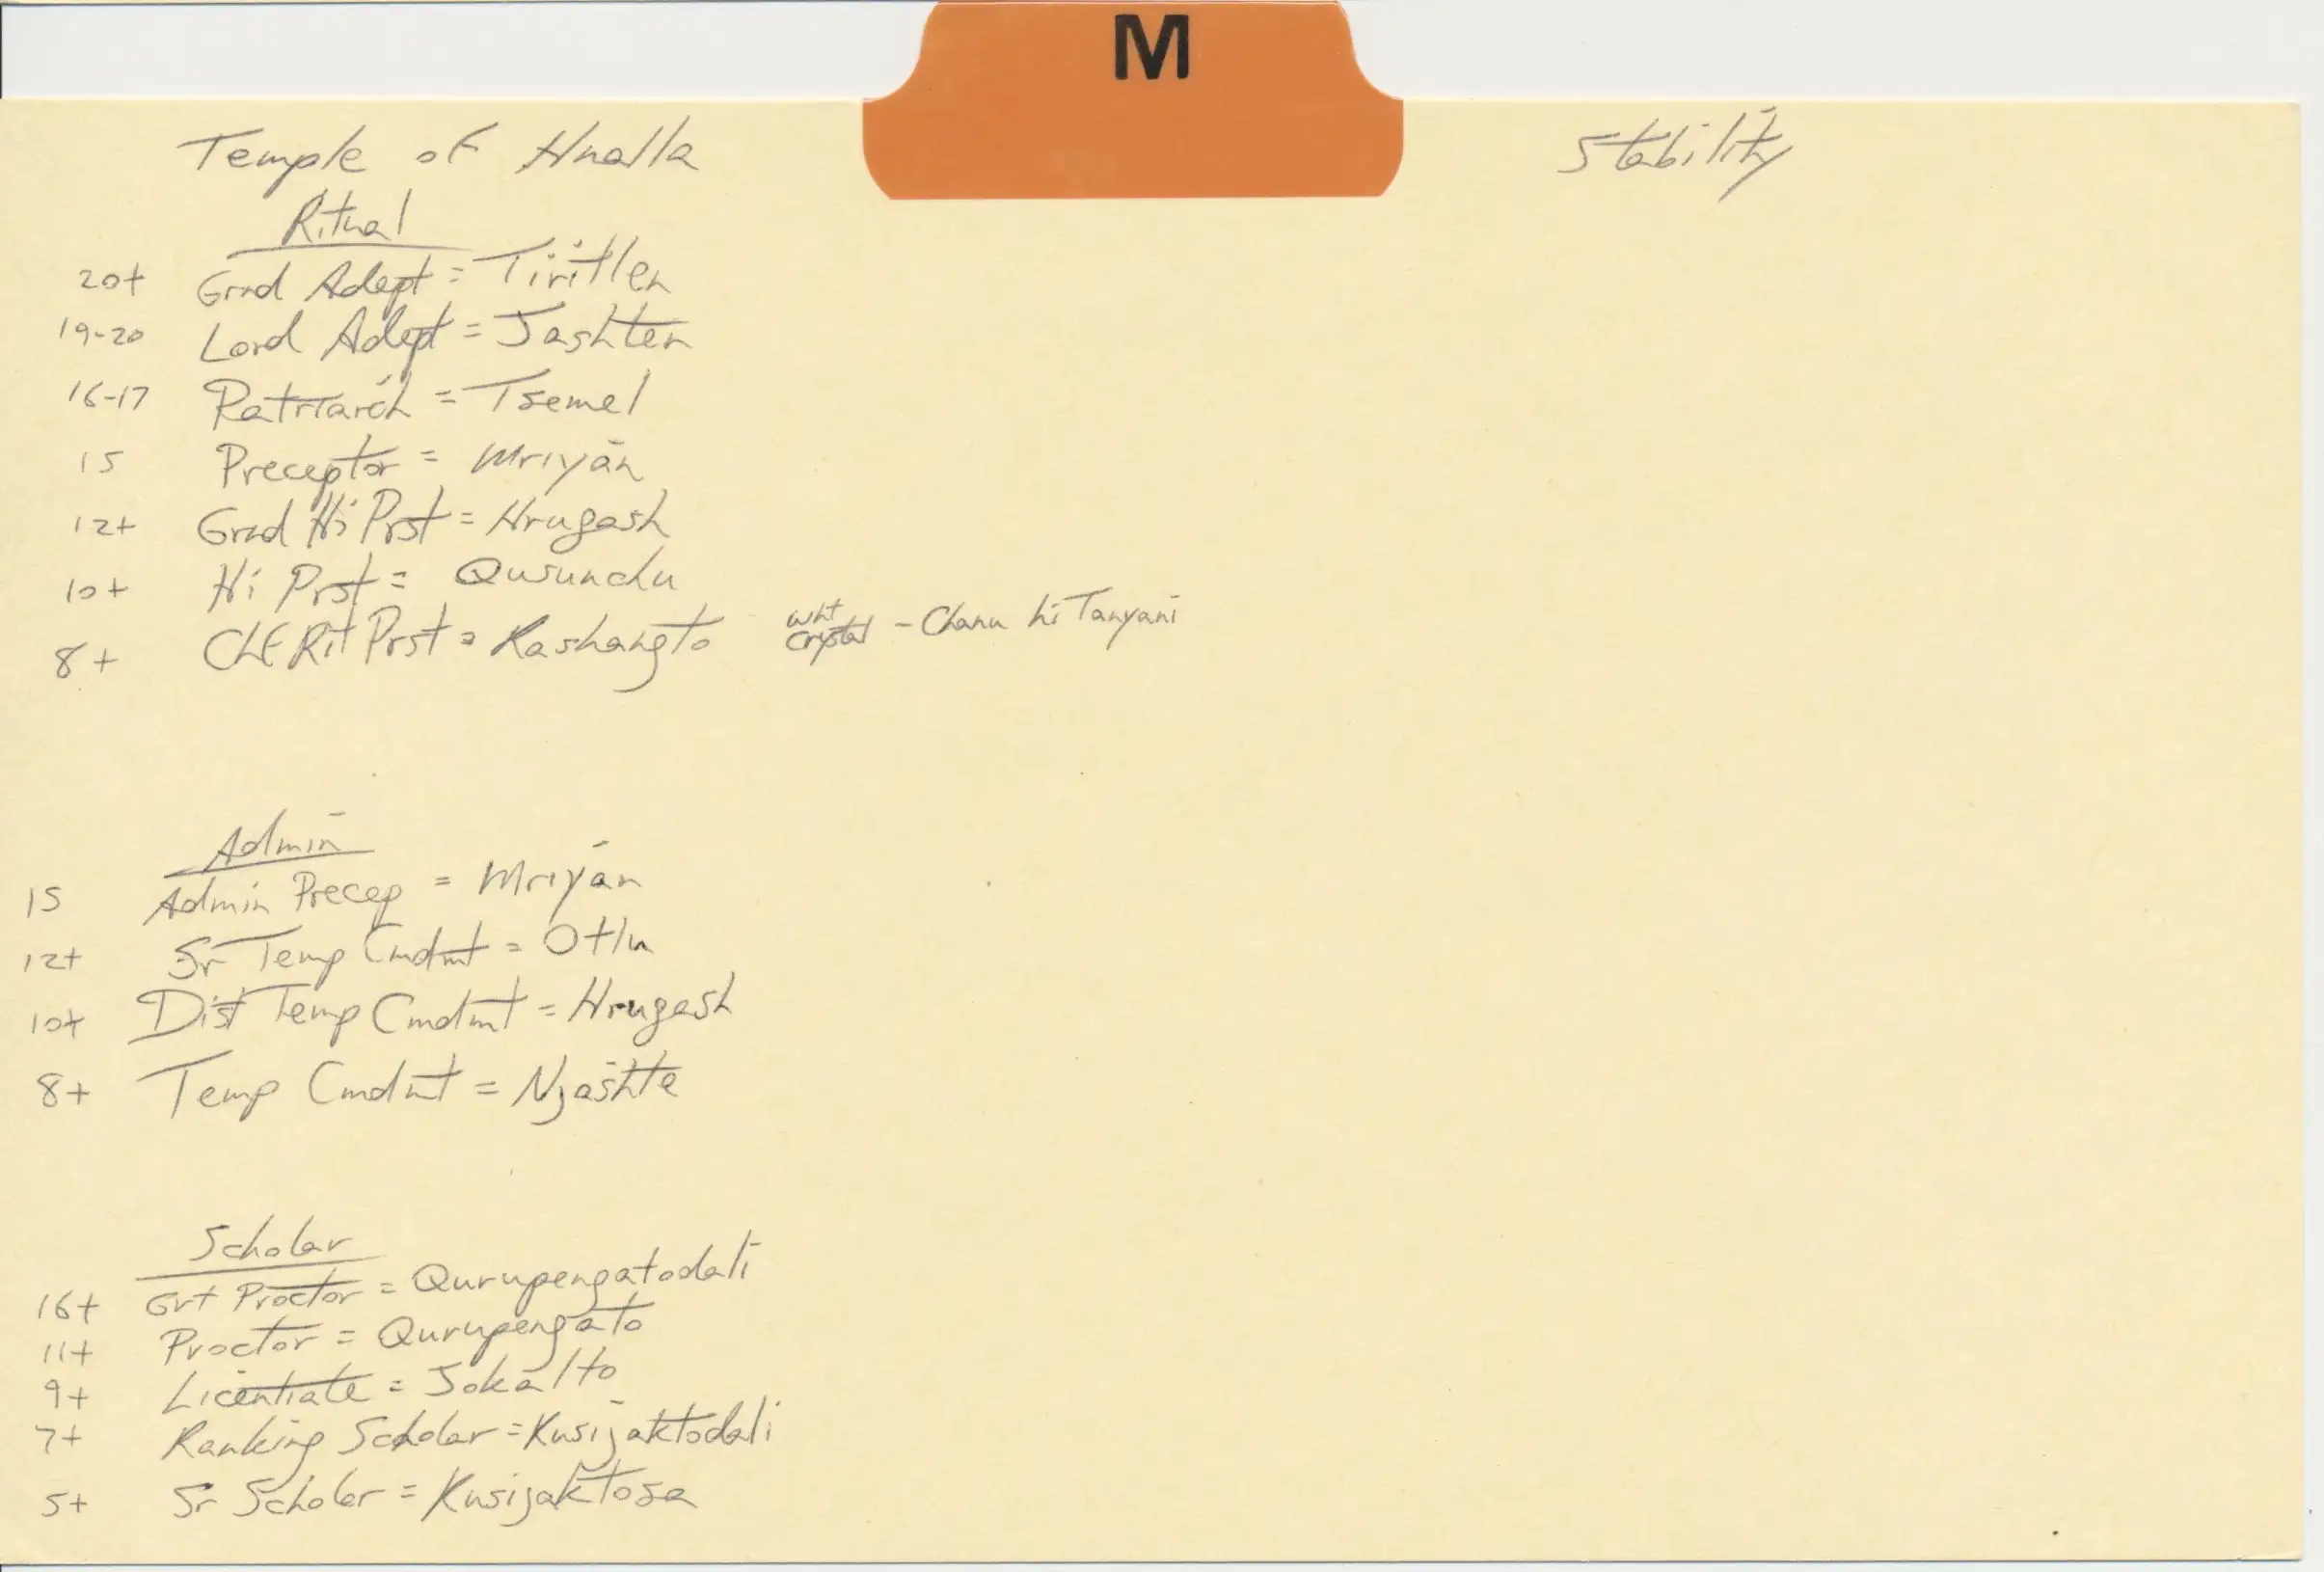 M
Temple of Hnalla
Stability
Ritual
20+ Grnd Adept = Tiritlen
19-20 Lord Adept = Jashten
16-17 Patriarch = Tsemel
15 Preceptor = Mriyan
12+ Grnd Hi Prst = Hrugash
10+ Hi Prst = Qusundu
8+ Chf Rit Prst = Kashangto wht crystal - Chanu hi Tanyani
Admin
15 Admin Precep = Mriyan
12+ Sr Temp Cmdmt = Otlu
10+ Dist Temp Cmdmt = Hrugash
8+ Temp Cmdmt = Njashte
Scholar
16+ Grt Proctor = Qurupengatodali
11+ Proctor = Qurupengato
9+ Licentiate = Jokalto
7+ Ranking Scholar = Kusijaktodali
5+ Sr Scholar = Kusijaktosa